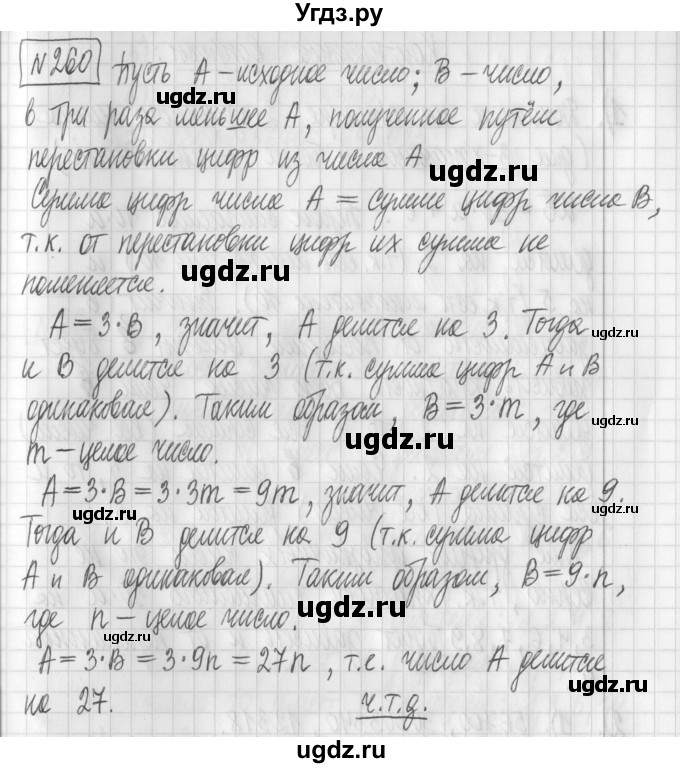 Угдз.ру
№260 Пусть A – исходное число; B – число,
ugdz.ru
в три раза меньшее A, полученное путём
ugdz.ru
перестановки цифр из числа A
ugdz.ru
Сумма цифр числа A = сумме цифр числа B,
т.к. от перестановки цифр их сумма не
ugdz.ru
поменяется.
A = 3·B, значит, A делится на 3. Тогда
ugdz.ru
и B делится на 3 (т.к. сумма цифр A и B
одинаковая). Таким образом, B = 3·m, где
ugdz.ru
ugdz.ru
m – целое число.
A = 3·B = 3·3m = 9m, значит, A делится на 9.
ugdz.ru
ugdz.ru
Тогда и B делится на 9 (т.к. сумма цифр
A и B одинаковая). Таким образом, B = 9·n,
ugdz.ru
где n – целое число.
ugdz.ru
A = 3·B = 3·9n = 27n, т.е. число A делится
ugdz.ru
на 27. ч.т.д.
ugdz.ru
ugdz.ru